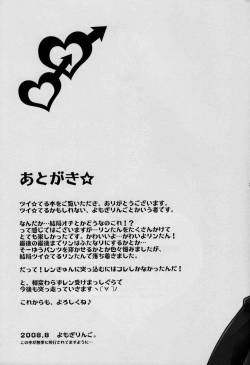 あとがき☆
ツイ☆てる本をご覧いただき、ありがとうございます。
ツイ☆てるかもしれない、よもぎりんごとかいう者です。
なんだか…結局オチとかどうなのこれ！？
って感じではございますがリンたんをたくさんかけて
とても楽しかったです。かわいいよ…かわいいよリンたん！
最後の最後までリンをふたなりにするかとか…
そーゆうパンツを穿かせるかとか色々悩みましたが、
結局ツイ☆てるリンたんで落ち着きました。
だって！レンきゅんに突っ込むにはコレしかなかったんだ！
と、相変わらずレン受けまっしぐらで
今後も突っ走っていきますヽ(´∀｀)ノ
これからも、よろしくね♪
2008.8 よもぎりんご。
この本が無事に発行されてますように…